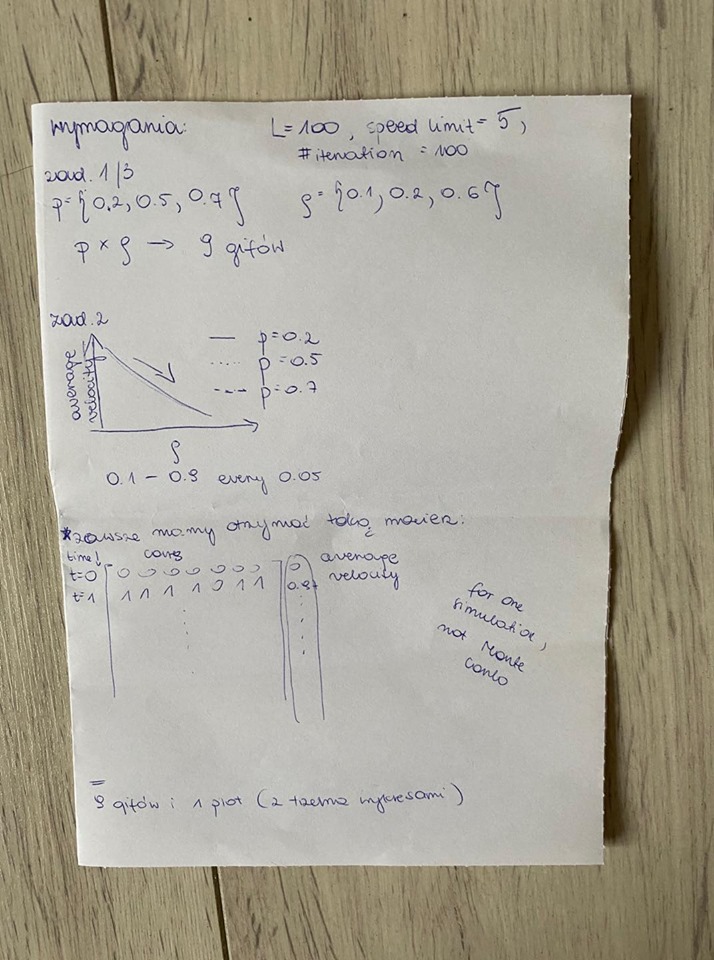 wymagania:
L=100, speed limit = 5,
#iteration = 100
zad. 1/3
p={0.2, 0.5, 0.7}
ρ={0.1, 0.2, 0.6}
p × ρ → 9 gifów
zad. 2
average velocity
p=0.2
p=0.5
p=0.7
ρ
0.1 – 0.9 every 0.05
*zawsze mamy otrzymać taką macierz:
time↓ cars
average
velocity
t=0 0 0 0 0 0 0 0 0
t=1 1 1 1 1 0 1 1
for one
simulation,
not Monte
Carlo
9 gifów i 1 plot (z trzema wykresami)